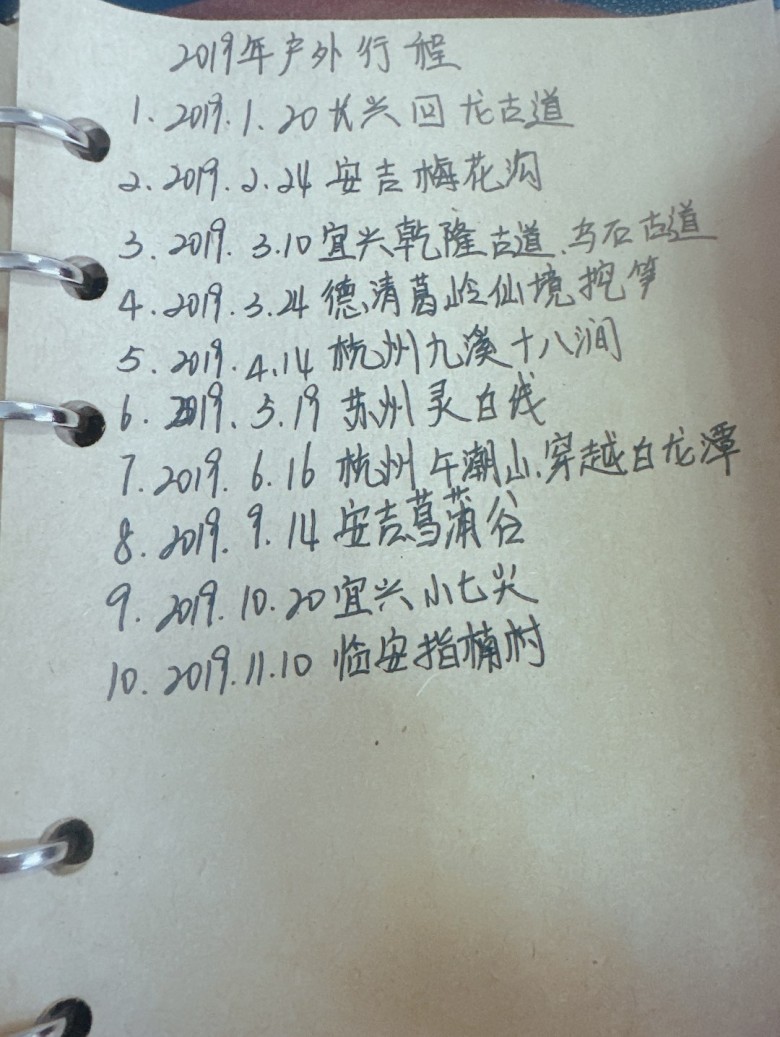 2019年户外行程
1.2019.1.20长兴回龙古道
2.2019.2.24安吉梅花沟
3.2019.3.10宜兴乾隆古道、乌石古道
4.2019.3.24德清葛岭仙境挖笋
5.2019.4.14杭州九溪十八涧
6.2019.5.19苏州灵白线
7.2019.6.16杭州午潮山、穿越白龙潭
8.2019.9.14安吉菖蒲谷
9.2019.10.20宜兴小七尖
10.2019.11.10临安指楠村